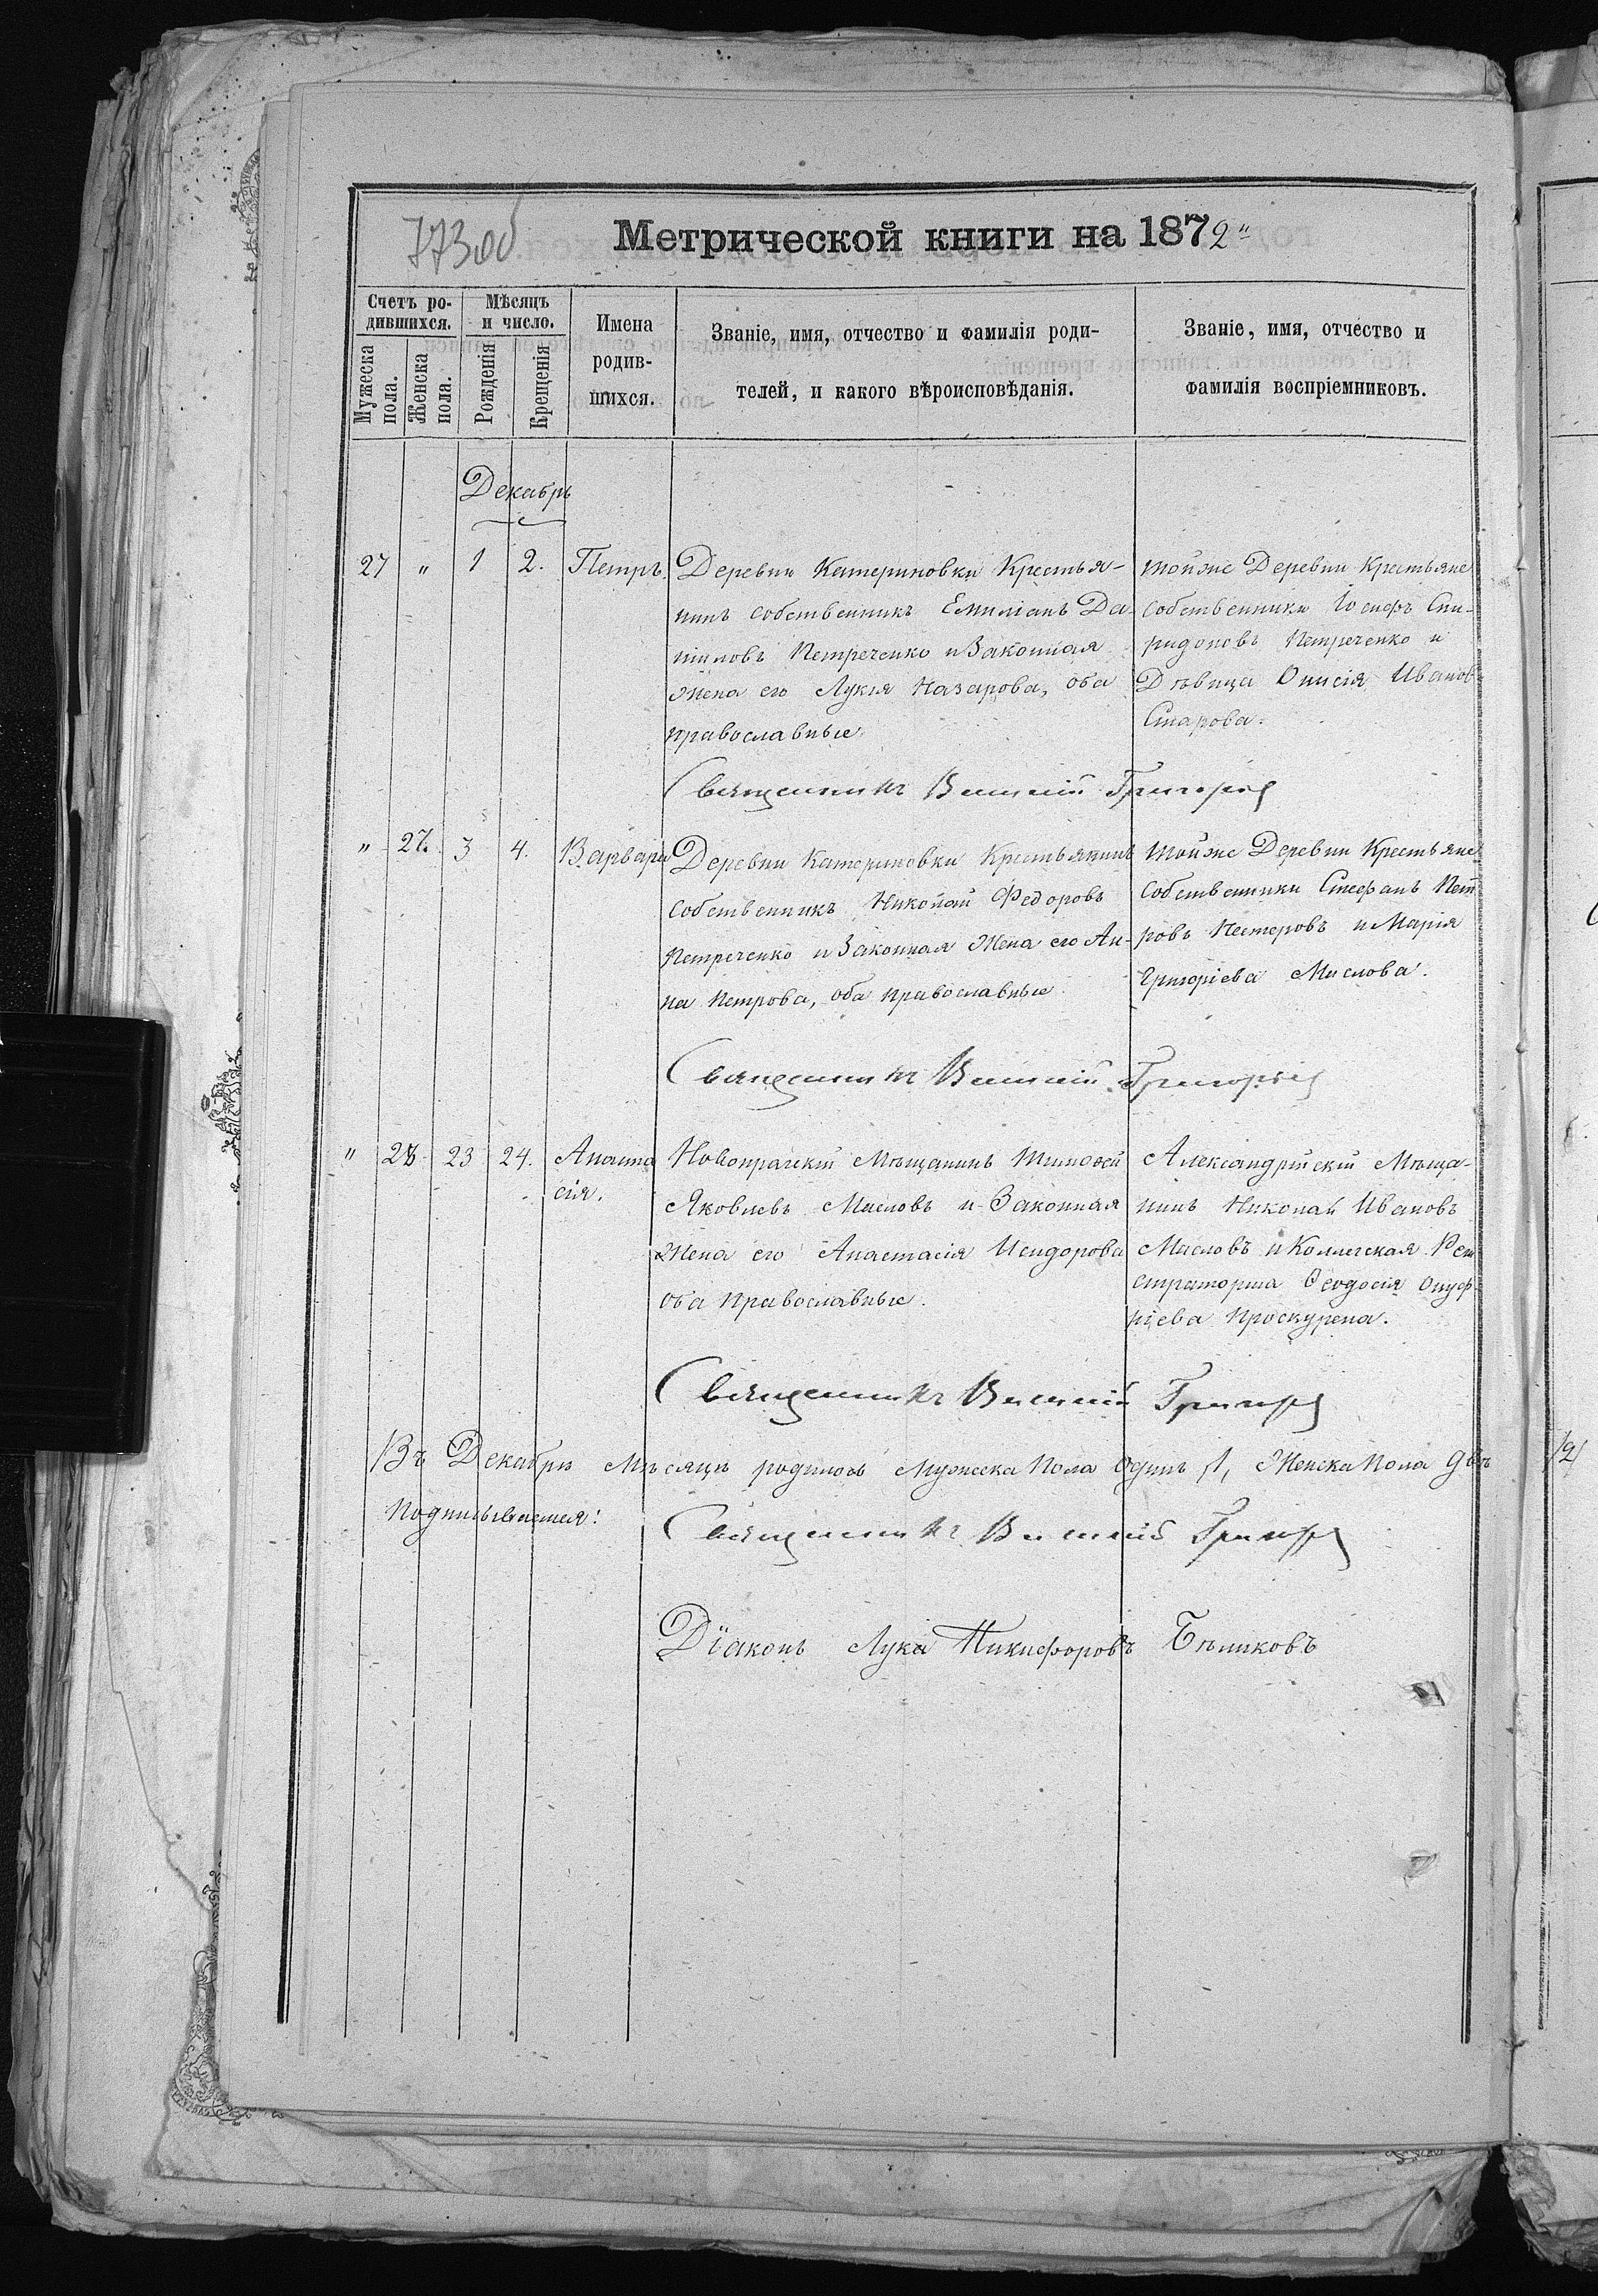 773об
Метрической книги на 1872"
Счетъ ро-
дившихся.
Мѣсяцъ
и число.
Мужеска
пола.
Женска
пола.
Рожденія
Крещенія
Имена
родив-
шихся.
Званіе, имя, отчество и фамилія роди-
телей, и какого вѣроисповѣданія.
Званіе, имя, отчество и
фамилія воспріемниковъ.
Декабрь
27 " 1 2. Петръ
Деревни Катериновки Крестья-
нинъ собственникъ Емиліанъ Да-
ниловъ Петреченко и Законная
Жена его Лукія Назарова, оба
православные
тойже Деревни Крестьяне
собственники Іосифъ Спи-
ридоновъ Петреченко и
Дѣвица Онисія Иванов
Старова.
Священникъ Василій Григор
" 27. 3 4. Варвара
Деревни Катериновки Крестьянинъ
собственникъ Николай Федоровъ
Петреченко и Законная Жена его Ан-
на Петрова, оба православные
тойже Деревни Крестьяне
собственники Стефанъ Пет
ровъ Нестеровъ и Марія
Григоріева Маслова.
Священникъ Василій Григор
" 28 23 24. Анаста
сія.
Новопражскій Мѣщанинъ Тимофей
Яковлевъ Масловъ и Законная
Жена его Анастасія Исидорова
оба Православные.
Александрійскій Мѣща-
нинъ Николай Ивановъ
Масловъ и Коллегская Реги
страторша Ѳеодосія Онуф-
ріева Проскурена.
Священникъ Василій Григор
Въ Декабрѣ Мѣсяцѣ родилось Мужеска Пола Одинъ /1, Женска Пола двѣ /2/
Подписываемся:
Священникъ Василій Григор
Діаконъ Лука Никифоровъ Бѣликовъ